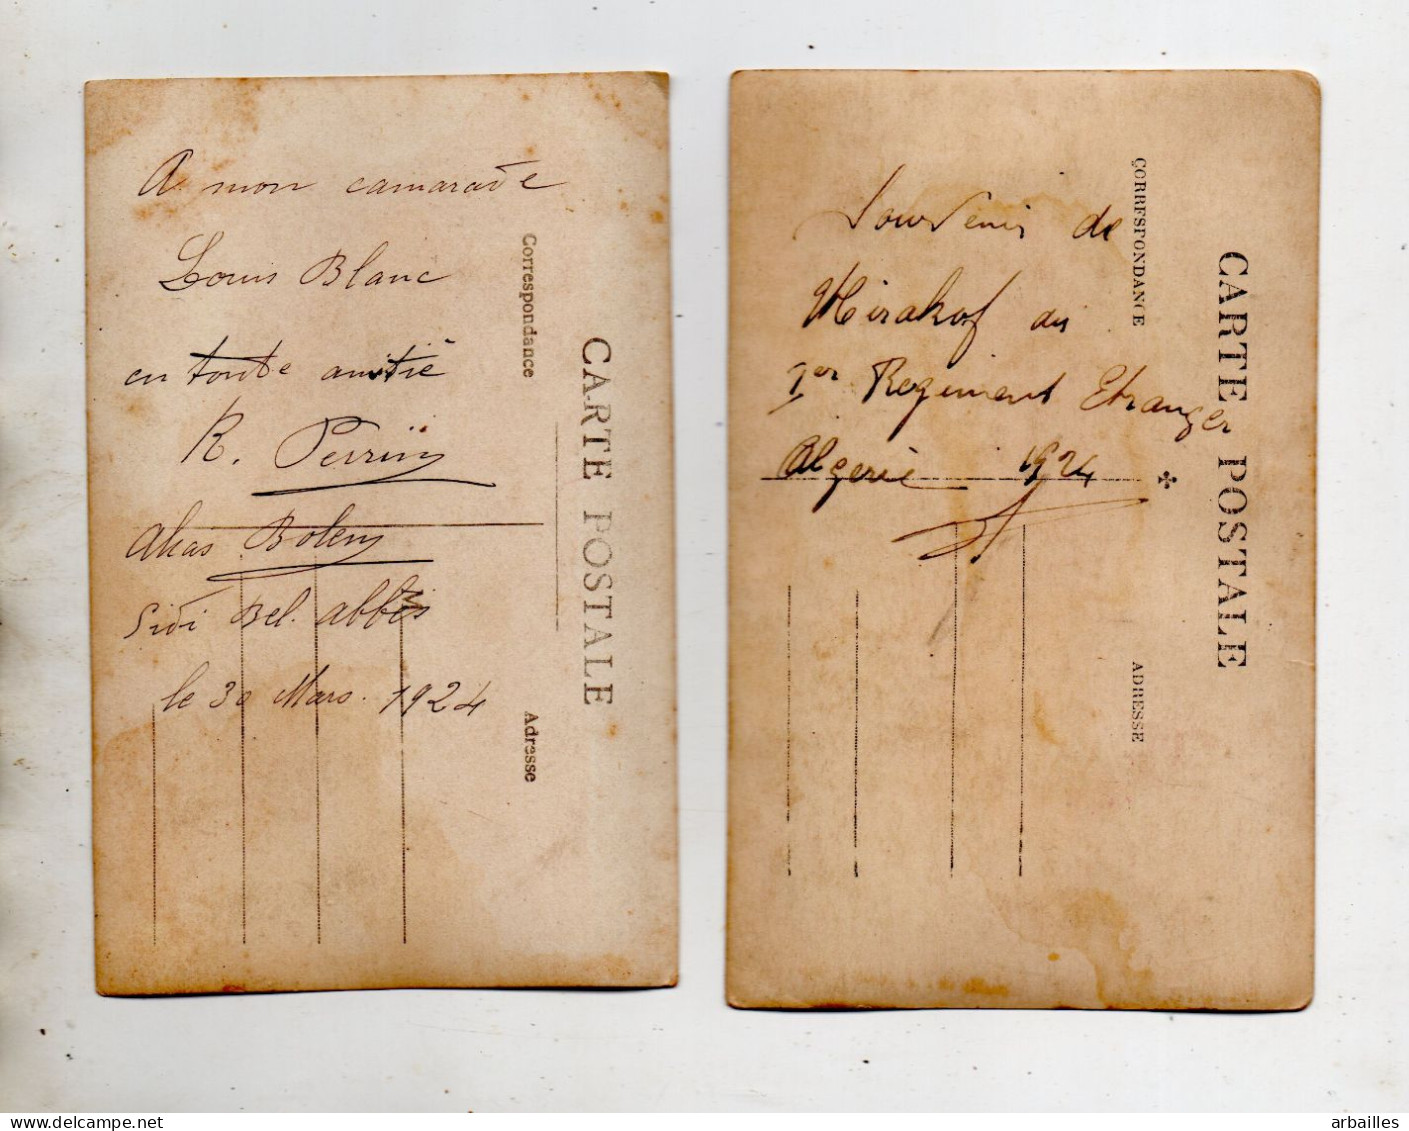 A mon camarade
Louis Blanc
en toute amitié
R. Perrin
alias Boleny
Sidi Bel. abbès
le 30 Mars. 1924
Correspondance
Adresse
CARTE POSTALE
Souvenir de
Mirakof du
1er Regiment Etranger
Algerie 1924
CORRESPONDANCE
ADRESSE
CARTE POSTALE
www.delcampe.net
arbailles